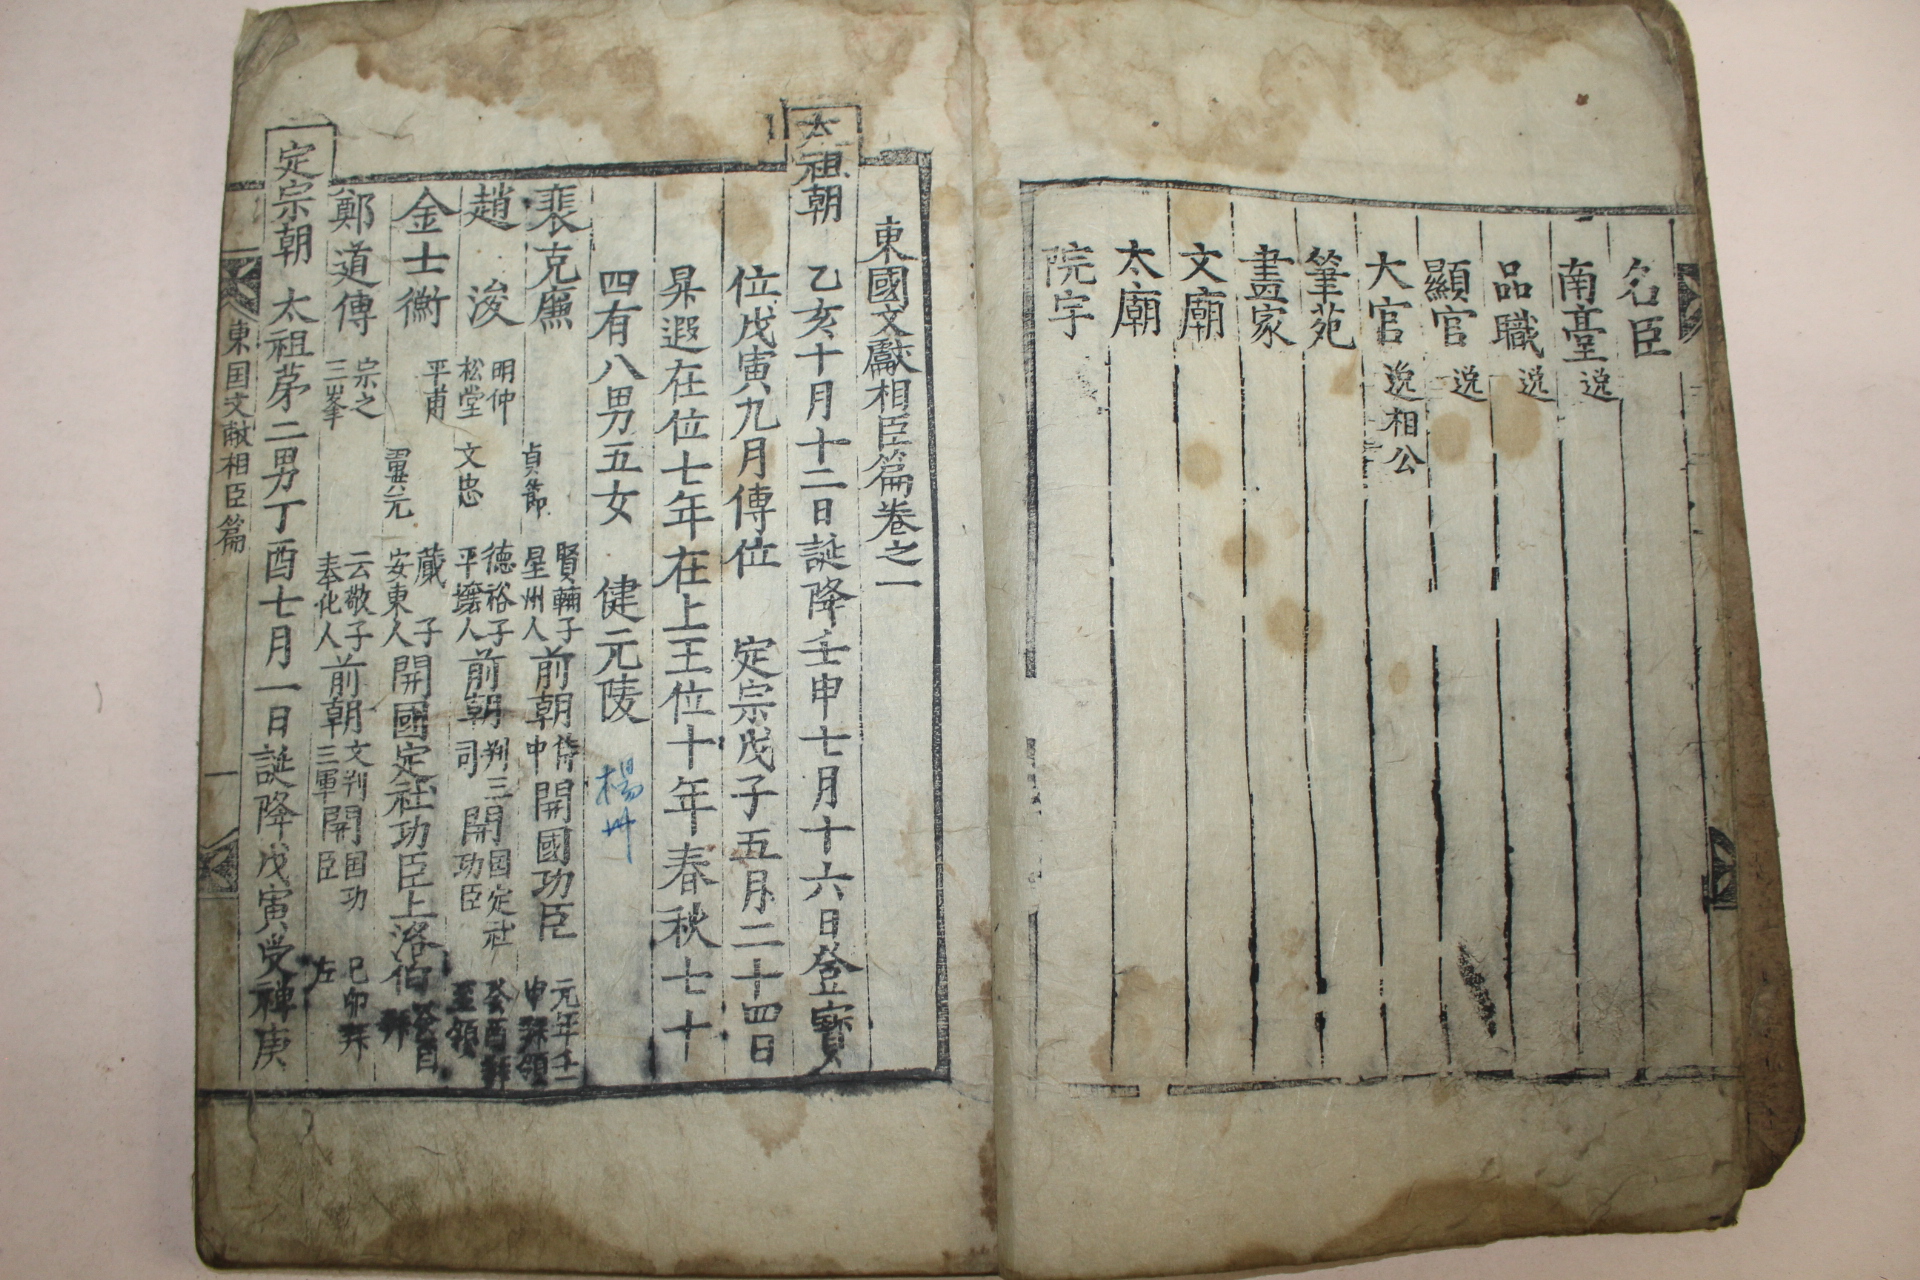 名臣
南臺 逸
品職 逸
顯官 逸
大官 逸相公
筆苑
畫家
文廟
太廟
院宇
東國文獻相臣篇卷之一
太祖朝 乙亥十月十二日誕降壬申七月十六日登寶
位戊寅九月傳位 定宗戊子五月二十四日
昇遐在位七年在上王位十年春秋七十
四有八男五女 健元陵 楊州
裴克廉 貞節 賢輔子 星州人 前朝 侍中 開國功臣 元年壬申拜領
趙浚 明仲 松堂 文忠 德裕子 平壤人 前朝 判三司 開 国定社功臣 癸酉拜 至領
金士衡 平甫 翼元 蕆子 安東人 開國定社功臣上洛伯 癸酉拜
鄭道傳 宗之 三峯 云敬子 奉化人 前朝 文判三軍 開 国功臣 己卯拜左
定宗朝 太祖苐二男丁酉七月一日誕降戊寅受禅庚
東国文献相臣篇 一